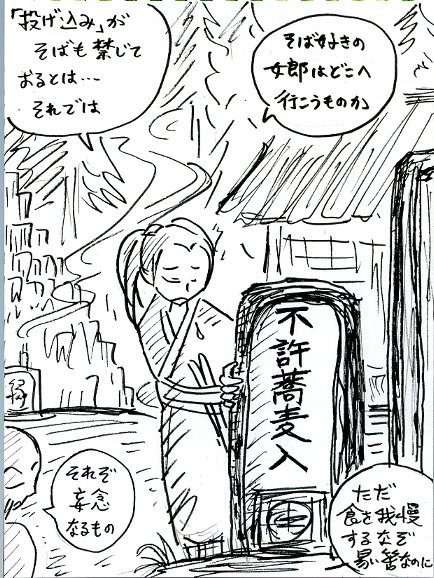 「投げ込み」が
そばも禁じて
おるとは…
それでは
そば好きの
女郎はどこへ
行こうものか
不許蕎麦入
縁
それぞ
妄念
なるもの
ただ
食を我慢
するなぞ
易い筈なのに